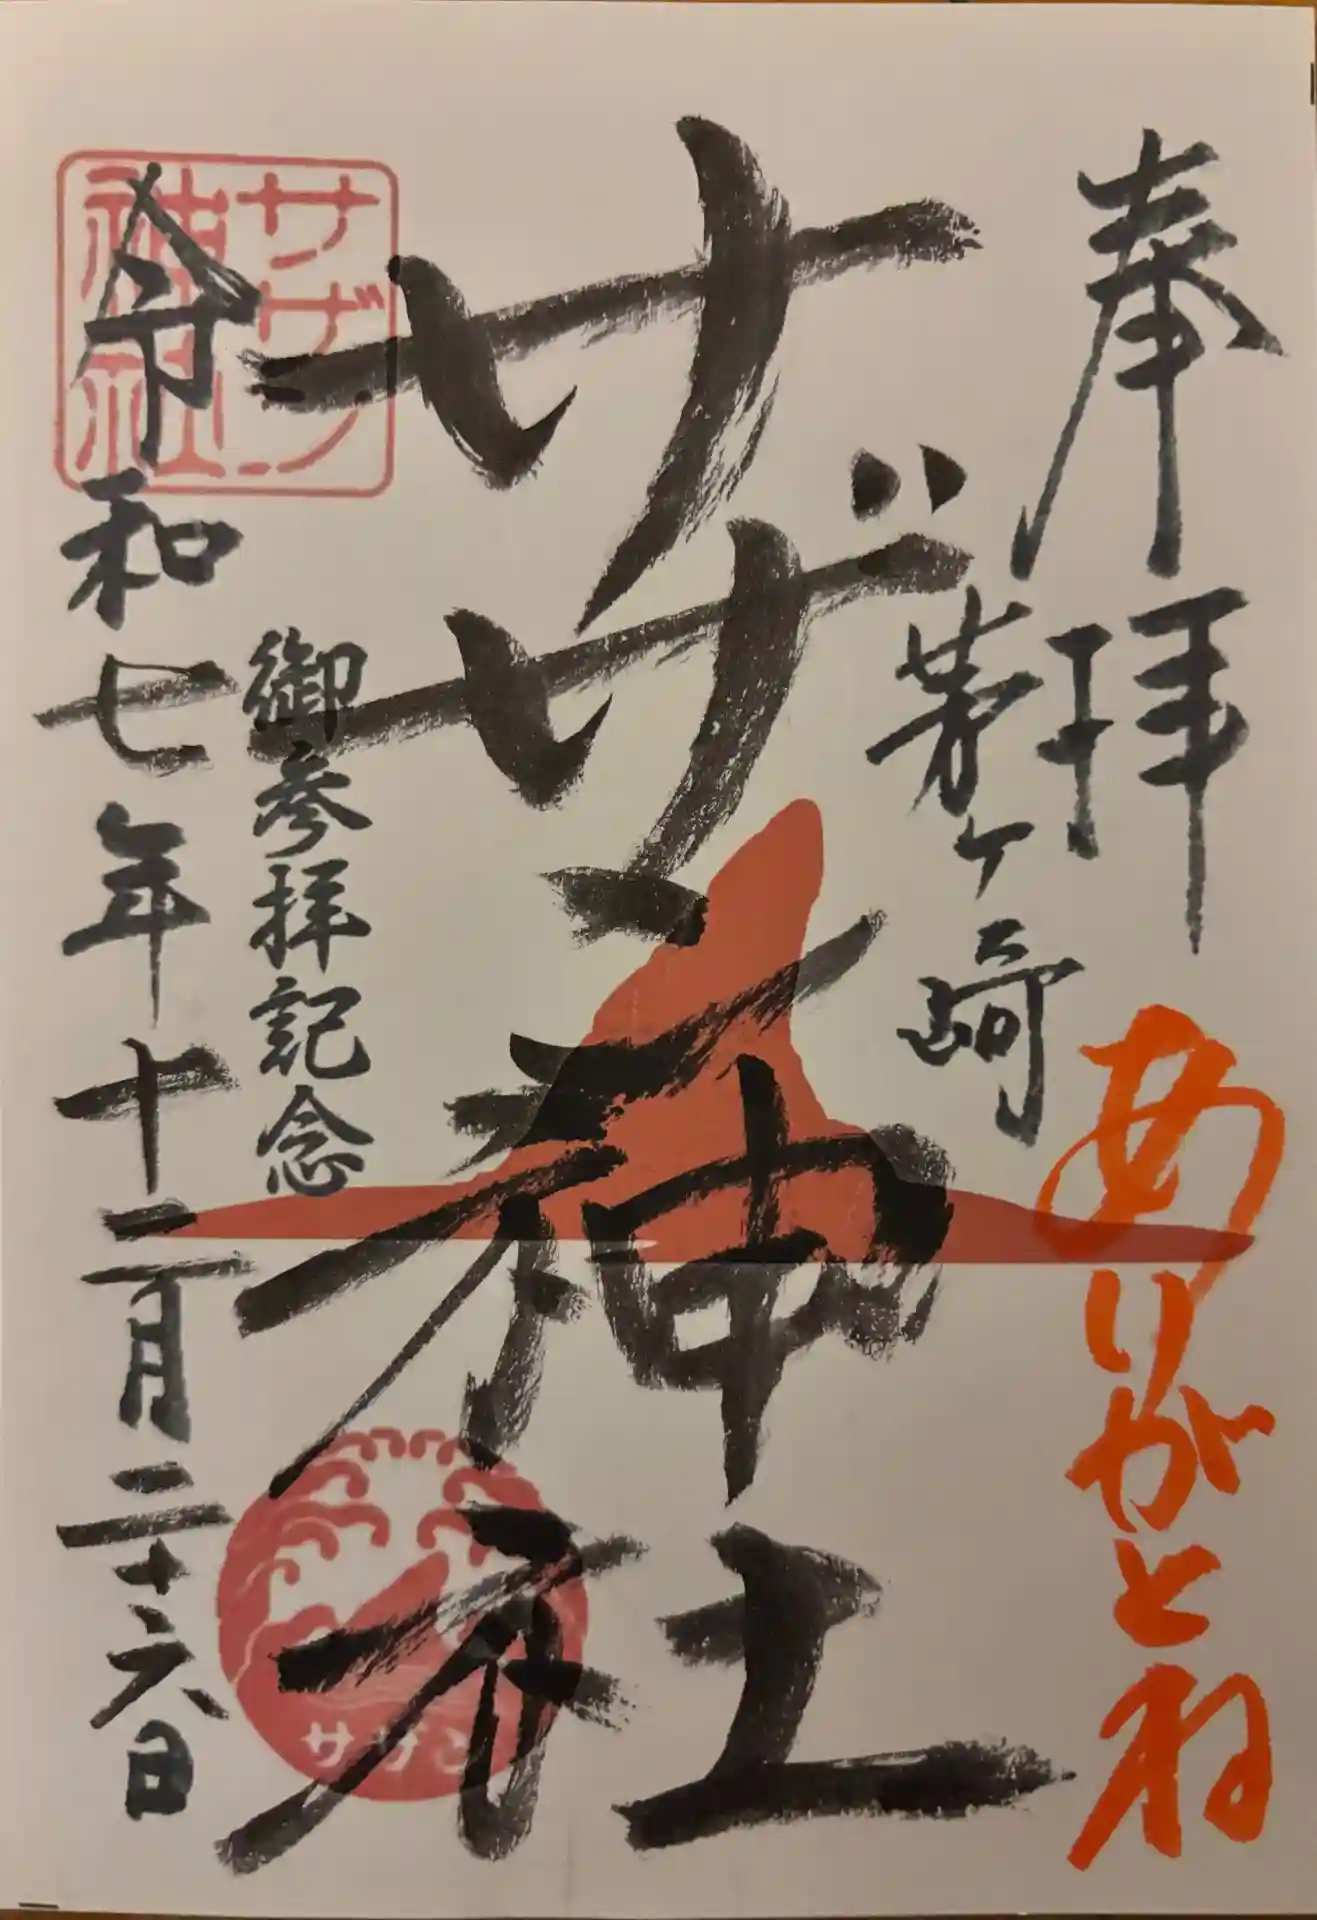 奉拝
茅ヶ﨑
ありがとね
サザン神社
御参拝記念
令和七年十二月二十六日
サザン
神社
サザン